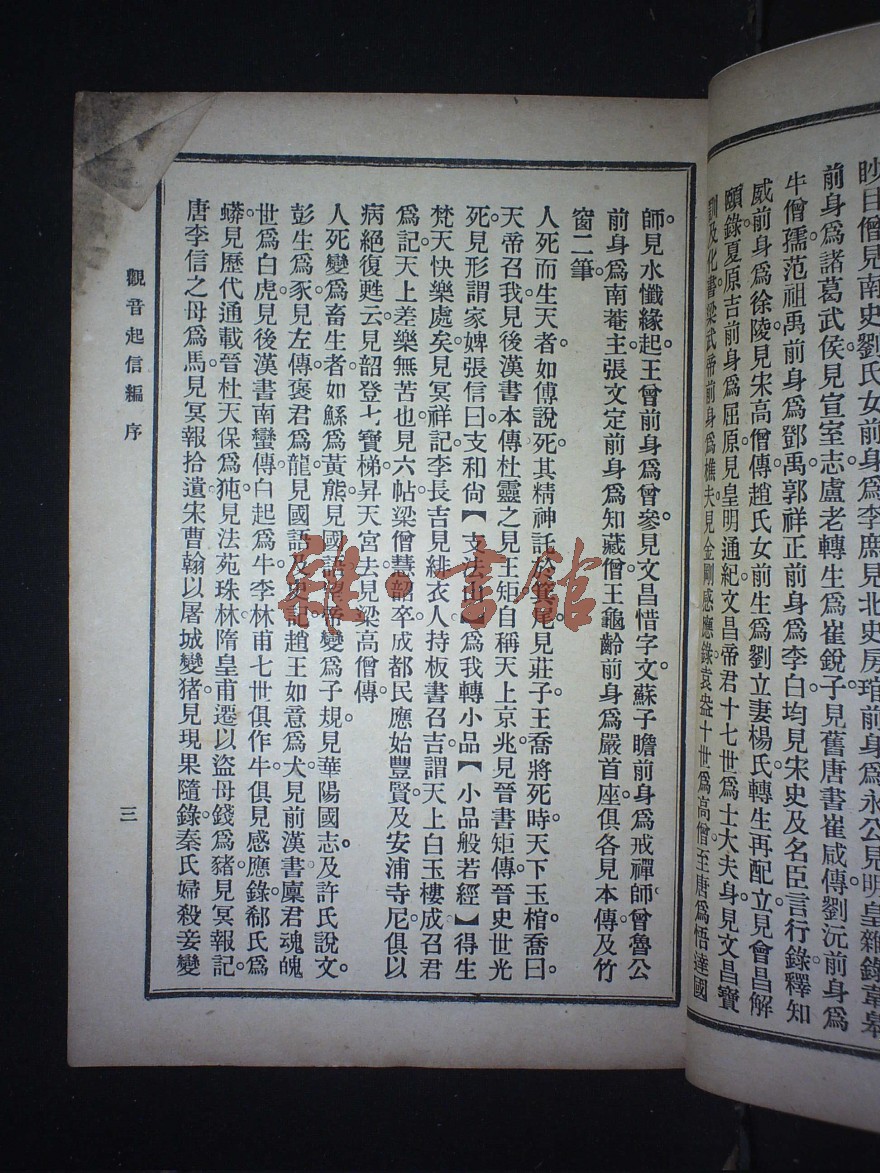 眇目僧見南史劉氏女前身爲李庶見北史房琯前身爲永公見明皇雜錄韋皋
前身爲諸葛武侯見宣室志盧老轉生爲崔銳子見舊唐書崔咸傳劉沅前身爲
牛僧孺范祖禹前身爲鄧禹郭祥正前身爲李白均見宋史及名臣言行錄釋知
威前身爲徐陵見宋高僧傳趙氏女前生爲劉立妻楊氏轉生再配立見會昌解
頤錄夏原吉前身爲屈原見皇明通紀文昌帝君十七世爲士大夫身見文昌寶
訓及化書梁武帝前身爲樵夫見金剛感應錄袁盎十世爲高僧至唐爲悟達國
師。見水懺緣起。王曾前身爲曾參。見文昌惜字文。蘇子瞻前身爲戒禪師。曾魯公
前身爲南菴主。張文定前身爲知藏僧。王龜齡前身爲嚴首座。俱各見本傳及竹
窗二筆。
人死而生天者。如傅說死。其精神託於箕尾。見莊子。王喬將死時。天下玉棺。喬曰。
天帝召我。見後漢書本傳。杜靈之見王矩。自稱天上京兆。見晉書矩傳。晉史世光
死。見形謂家婢張信曰。支和尙【支法山】爲我轉小品【小品般若經】得生
梵天快樂處矣。見冥祥記。李長吉見緋衣人持板書召吉。謂天上白玉樓成。召君
爲記。天上差樂無苦也。見六帖。梁僧慧韶卒。成都民應始豐。賢及安浦寺尼。俱以
病絕復甦。云見韶登七寶梯。昇天宮去。見梁高僧傳。
人死變爲畜生者。如鯀爲黃熊。見國語。望帝變爲子規。見華陽國志及許氏說文。
彭生爲豕。見左傳。褒君爲龍。見國語及史記。趙王如意爲犬。見前漢書。廩君魂魄
世爲白虎。見後漢書南蠻傳。白起爲牛。李林甫七世俱作牛。俱見感應錄。郗氏爲
蟒。見歷代通載。晉杜天保爲㹠。見法苑珠林。隋皇甫遷以盜母錢爲豬。見冥報記。
唐李信之母爲馬。見冥報拾遺。宋曹翰以屠城變豬。見現果隨錄。秦氏婦殺妾變
觀音起信編 序
三
雜·書館